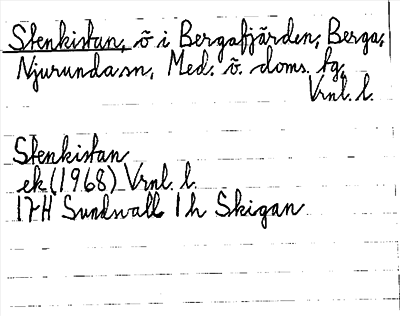 Stenkistan, ö i Bergafjärden, Berga,
Njurunda sn, Med. ö. doms. tg,
Vrnl. l.
Stenkistan
ek (1968) Vrnl. l.
17H Sundsvall 1h Skigan